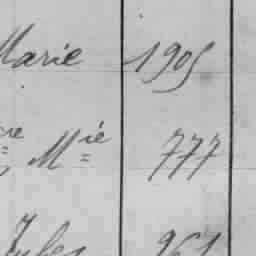 Marie 1905
Mie 777
Jules 961